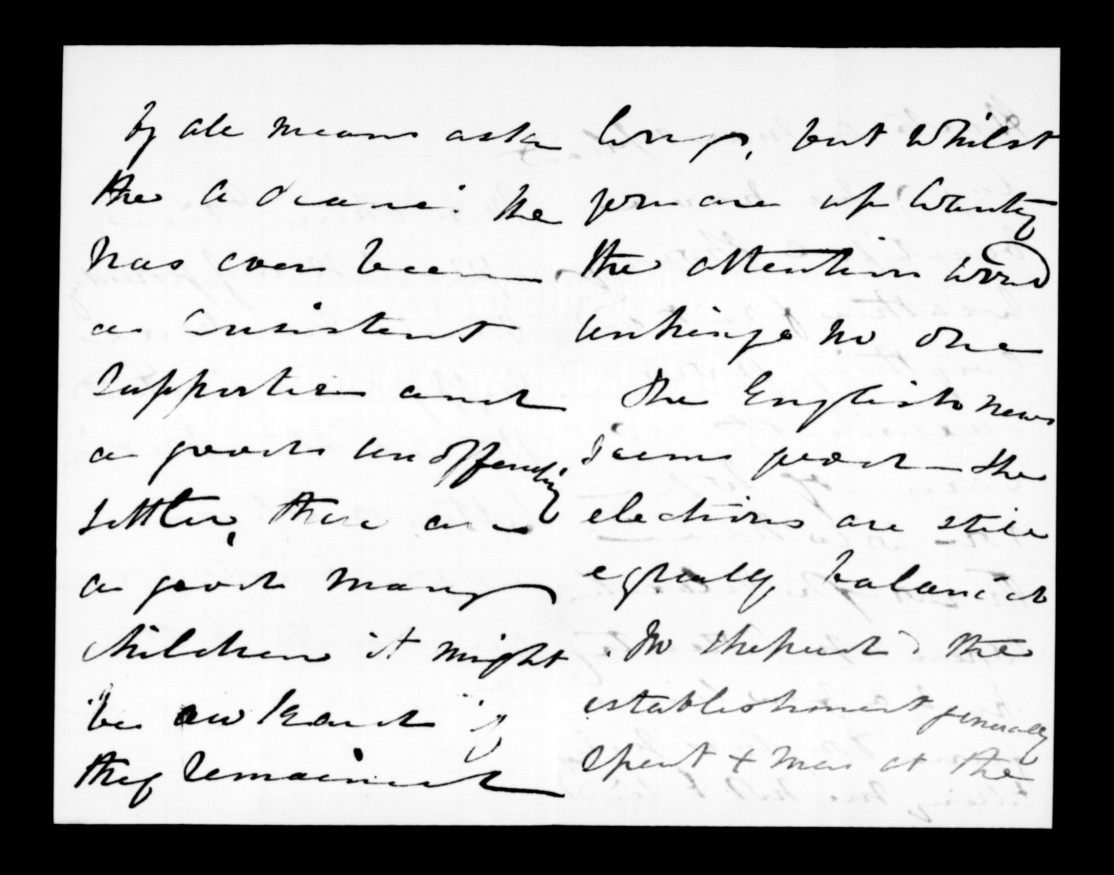 by all means ask
the
has ever been
a consistent
supporter and
a good unoffending
settler, there are
a good many
children it might
be awkward if
they remained
long, but whilst
you are up country
the attention would
unhinge no one
The English news
seems good the
elections are still
equally balanced
the
establishment generally
spent + mas at the